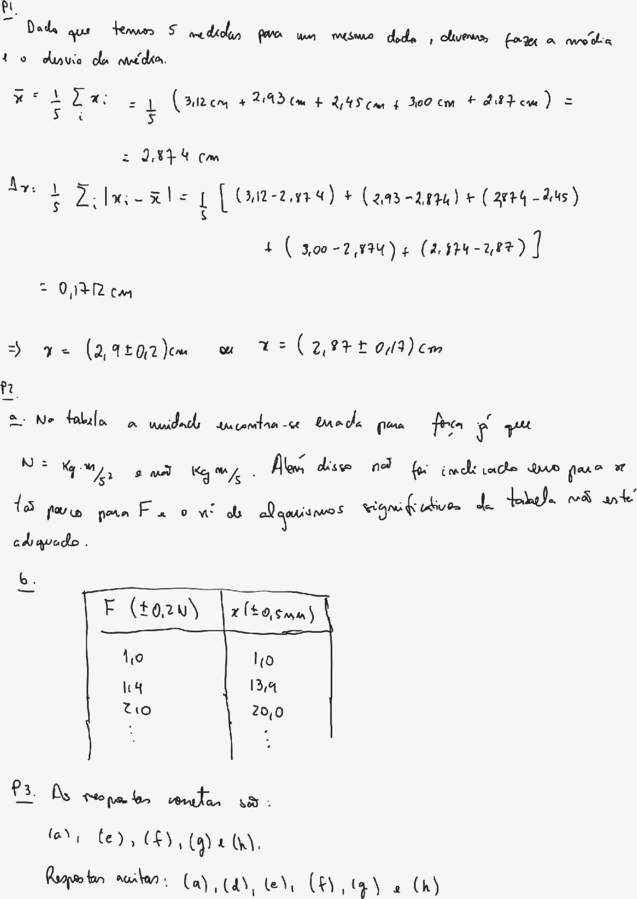 P1.
Dado que temos 5 medidas para um mesmo dado, devemos fazer a média
e o desvio da média.
x̄ = 1/5 Σᵢ xᵢ = 1/5 (3,12 cm + 2,93 cm + 2,45 cm + 3,00 cm + 2.87 cm) =
= 2,874 cm
Δx = 1/5 Σᵢ |xᵢ - x̄| = 1/5 [(3,12-2,874) + (2,93-2,874) + (2,874-2,45)
+ (3,00-2,874) + (2,874-2,87)]
= 0,1712 cm
⇒ x = (2,9 ± 0,2) cm ou x = (2,87 ± 0,17) cm
P2.
a. Na tabela a unidade encontra-se errada para força já que
N = Kg·m/s² e não Kg m/s. Além disso não foi indicado erro para x
tão pouco para F e o nº de algarismos significativos da tabela não está
adequado.
b.
F (±0,2N) x (±0,5mm)
1,0 1,0
1,4 13,9
2,0 20,0
⋮ ⋮
P3. As respostas corretas são:
(a), (e), (f), (g) e (h).
Respostas aceitas: (a), (d), (e), (f), (g) e (h)